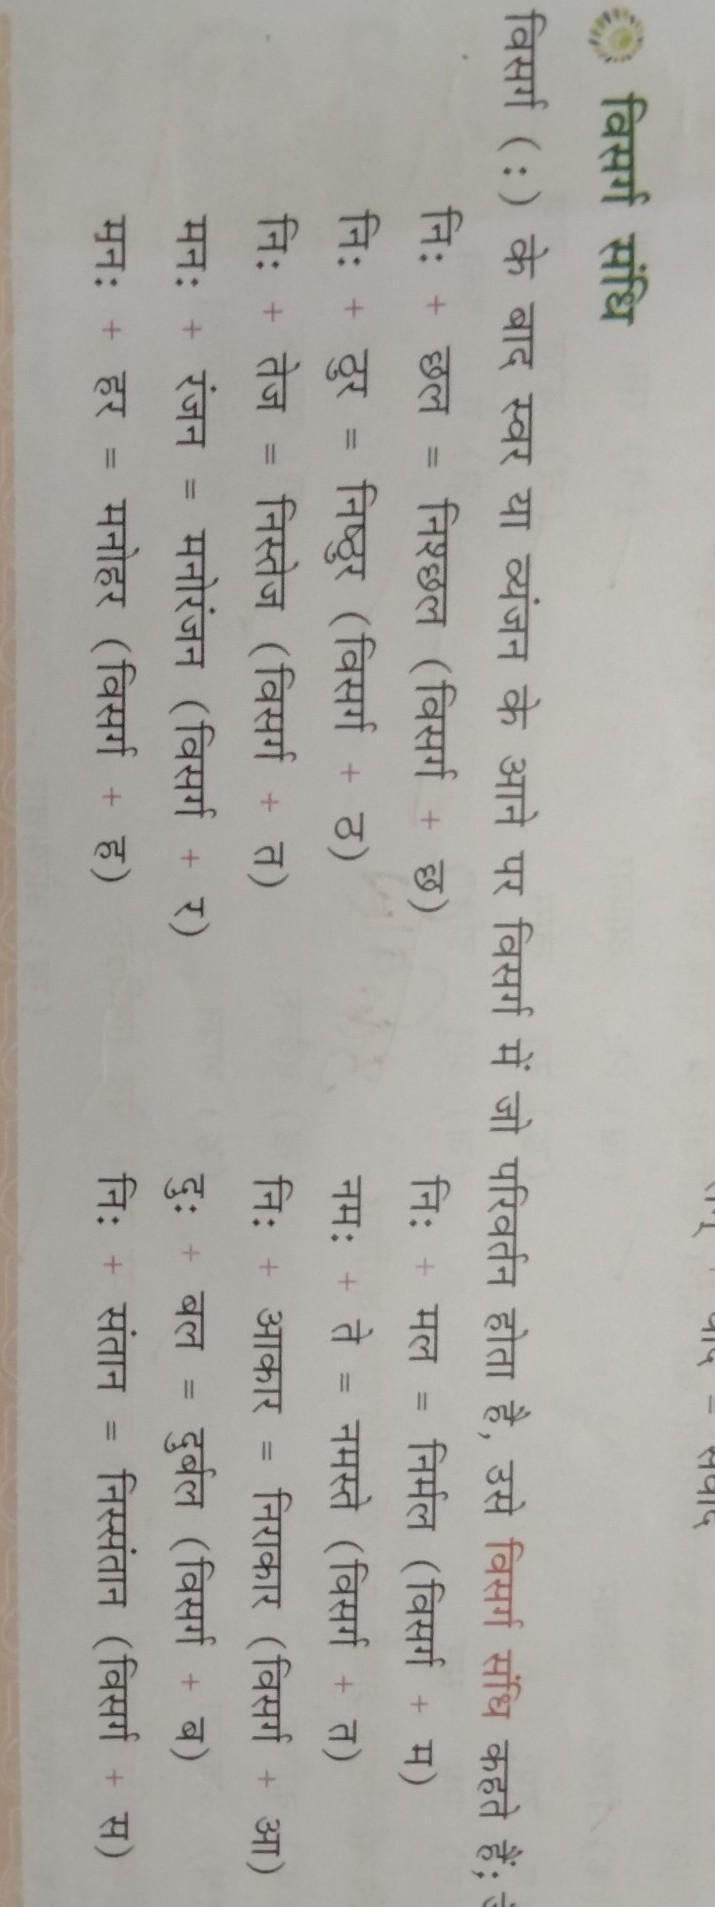 वाद = संवाद
विसर्ग संधि
विसर्ग (:) के बाद स्वर या व्यंजन के आने पर विसर्ग में जो परिवर्तन होता है, उसे विसर्ग संधि कहते हैं;
नि: + छल = निश्छल (विसर्ग + छ) नि: + मल = निर्मल (विसर्ग + म)
नि: + ठुर = निष्ठुर (विसर्ग + ठ) नम: + ते = नमस्ते (विसर्ग + त)
नि: + तेज = निस्तेज (विसर्ग + त) नि: + आकार = निराकार (विसर्ग + आ)
मन: + रंजन = मनोरंजन (विसर्ग + र) दु: + बल = दुर्बल (विसर्ग + ब)
मन: + हर = मनोहर (विसर्ग + ह) नि: + संतान = निस्संतान (विसर्ग + स)